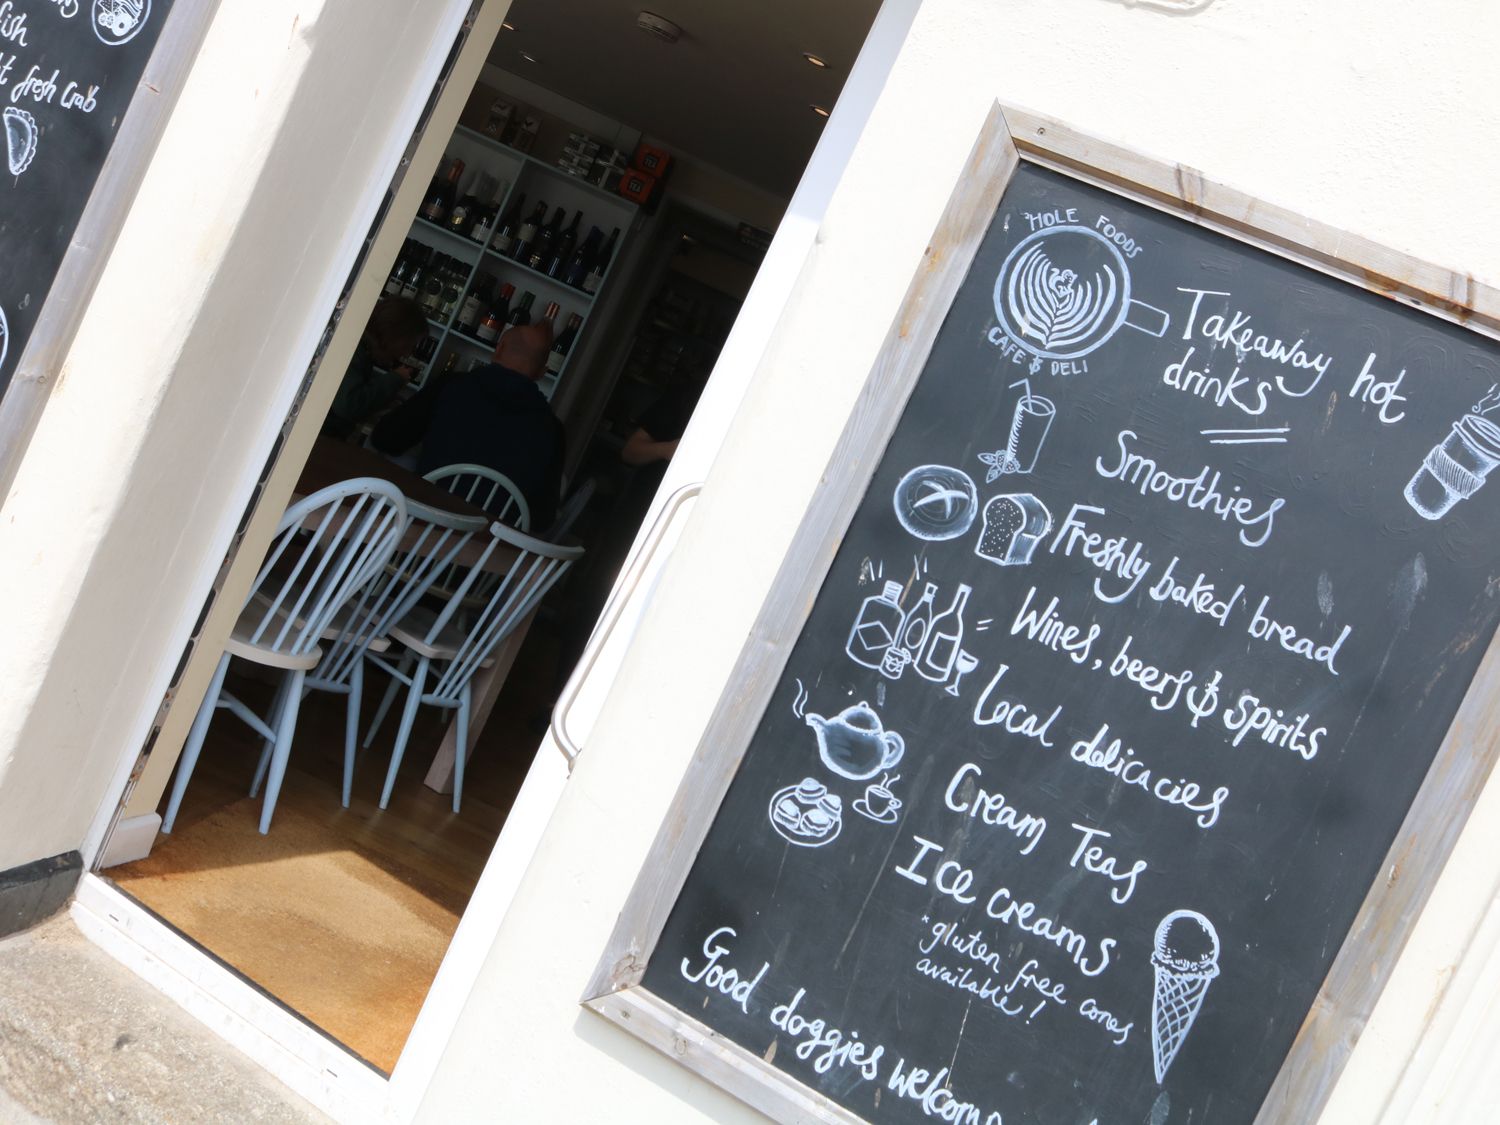 fish
fresh Crab
TEA
TEA
'HOLE FOODS
CAFE & DELI
Takeaway hot
drinks
Smoothies
Freshly baked bread
Wines, beers & spirits
Local delicacies
Cream Teas
Ice creams
*gluten free cones
available!
Good doggies welcome